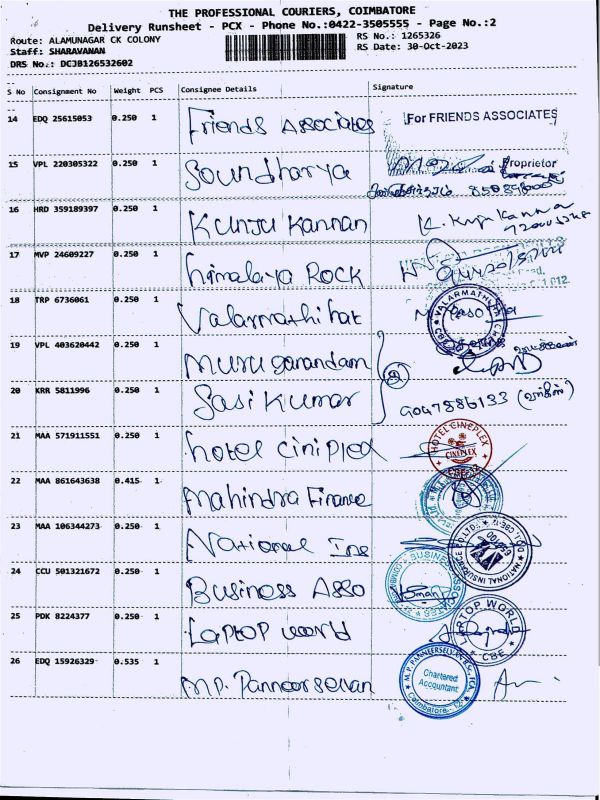 THE PROFESSIONAL COURIERS, COIMBATORE
Delivery Runsheet - PCX - Phone No.:0422-3505555 - Page No.:2
Route: ALAMUNAGAR CK COLONY RS No.: 1265326
Staff: SHARAVANAN RS Date: 30-Oct-2023
DRS No.: DCJB126532602
S No Consignment No Weight PCS Consignee Details Signature
14 EDQ 25615053 0.250 1 Friends Associates For FRIENDS ASSOCIATES
Proprietor
15 VPL 220305322 0.250 1 Soundharya
16 HRD 359189397 0.250 1 Kunju Kannan K. Kunju Kannan
17 MVP 24609227 0.250 1 himalaya Rock
18 TRP 6736061 0.250 1 Valarmathi hat VALARMATHI
19 VPL 403620442 0.250 1 muru ganandam
20 KRR 5811996 0.250 1 Sasi Kumar 9047586133
21 MAA 571911551 0.250 1 hotel ciniplex HOTEL CINEPLEX CINEPLEX
22 MAA 861643638 0.415 1 Mahindra Finance
23 MAA 106344273 0.250 1 National Ins NATIONAL INSURANCE CO. LTD.
24 CCU 501321672 0.250 1 Business Asso BUSINESS ASSOCIATES
25 PDK 8224377 0.250 1 Laptop world LAPTOP WORLD CBE
26 EDQ 15926329 0.535 1 M.P. Panneerselvan M.P. PANNEERSELVAM Chartered Accountant Coimbatore